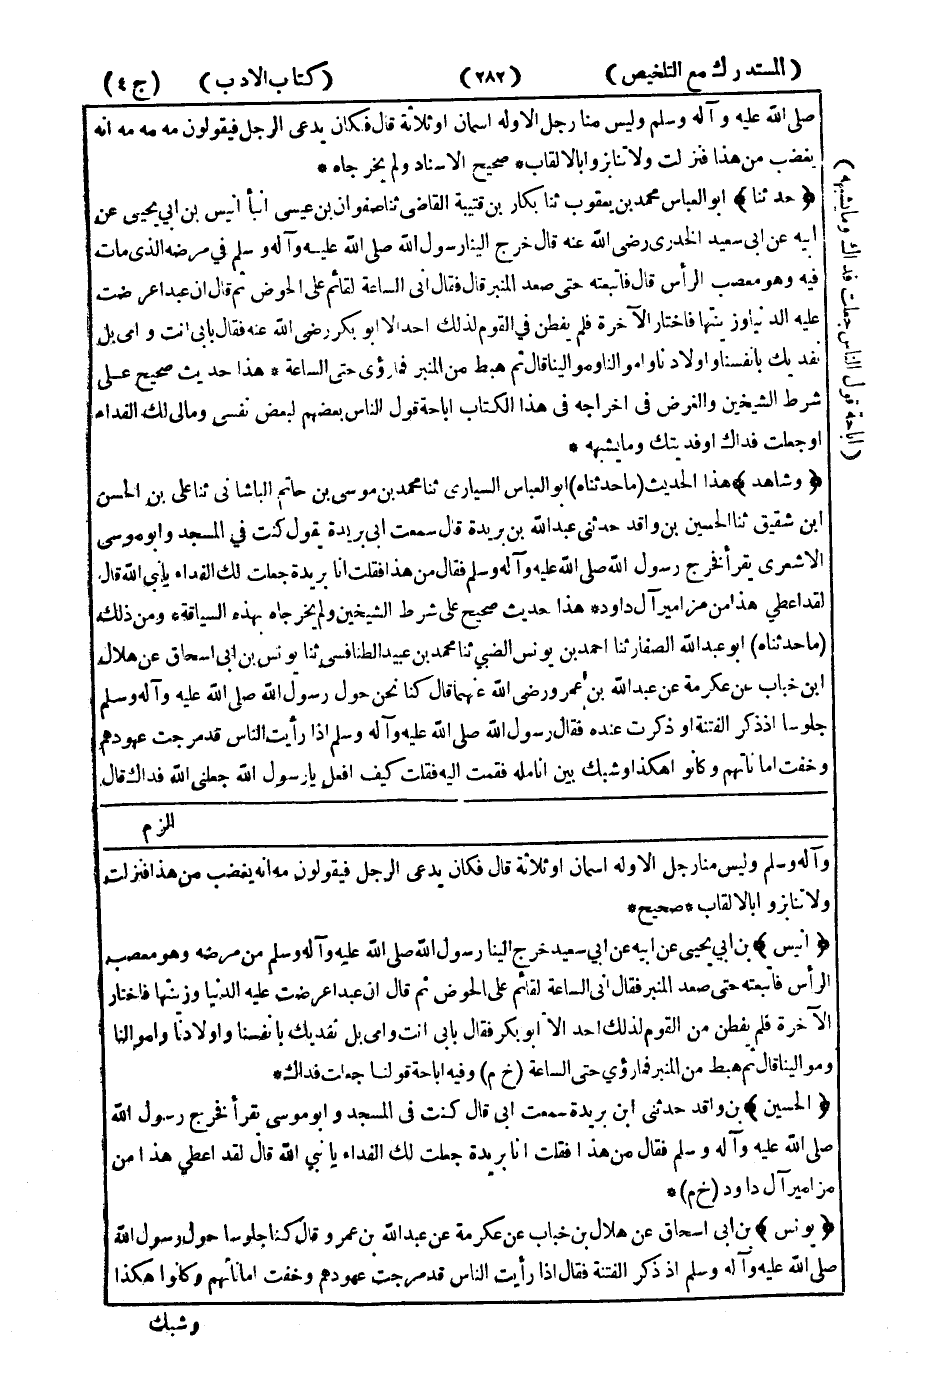 (المستدرك مع التلخيص) (٢٨٢) (كتاب الادب) (ج٤)
صلى الله عليه وآله وسلم وليس منا رجل الاوله اسمان اوثلاثة قال فكان يدعى الرجل فيقولون مه مه مه انه
يغضب من هذا فنزلت ولا تنابزوا بالالقاب* صحيح الاسناد ولم يخرجاه *
﴿حدثنا﴾ ابوالعباس محمد بن يعقوب ثنا بكار بن قتيبة القاضى ثنا صفوان بن عيسى انبأ انيس بن ابي يحيى عن
ابيه عن ابى سعيد الخدرى رضى الله عنه قال خرج الينا رسول الله صلى الله عليه وآله وسلم في مرضه الذى مات
فيه وهو معصب الرأس قال فاتبعته حتى صعد المنبر قال فقال انى الساعة لقائم على الحوض ثم قال ان عبدا عرضت
عليه الدنيا وزينتها فاختار الآخرة فلم يفطن في القوم لذلك احد الا ابوبكر رضى الله عنه فقال بابى انت وامى بل
نفديك بانفسنا واولادنا واموالنا وموالينا قال ثم هبط من المنبر فمارؤى حتى الساعة * هذا حديث صحيح على
شرط الشيخين والغرض فى اخراجه فى هذا الكتاب اباحة قول الناس بعضهم لبعض نفسى ومالى لك الفداء
اوجعلت فداك اوفديتك ومايشبهه *
﴿وشاهد﴾ هذا الحديث (ماحدثناه) ابوالعباس السيارى ثنا محمد بن موسى بن حاتم الباشانى ثنا على بن الحسن
ابن شقيق ثنا الحسين بن واقد حدثنى عبدالله بن بريدة قال سمعت ابى بريدة يقول كنت في المسجد وابوموسى
الاشعرى يقرأ فخرج رسول الله صلى الله عليه وآله وسلم فقال من هذا فقلت انا بريدة جعلت لك الفداء يانبي الله قال
لقد اعطي هذا من مزامير آل داود* هذا حديث صحيح على شرط الشيخين ولم يخرجاه بهذه السياقة* ومن ذلك
(ماحدثناه) ابوعبدالله الصفار ثنا احمد بن يونس الضبي ثنا محمد بن عبيد الطنافسى ثنا يونس بن ابى اسحاق عن هلال
ابن خباب عن عكرمة عن عبدالله بن عمرو رضى الله عنهما قال كنا نحن حول رسول الله صلى الله عليه وآله وسلم
جلوسا اذ ذكر الفتنة او ذكرت عنده فقال رسول الله صلى الله عليه وآله وسلم اذا رأيت الناس قد مرجت عهودهم
وخفت اماناتهم وكانوا هكذا وشبك بين انامله فقمت اليه فقلت كيف افعل يارسول الله جعلنى الله فداك قال
الزم
وآله وسلم وليس منا رجل الاوله اسمان اوثلاثة قال فكان يدعى الرجل فيقولون مه انه يغضب من هذا فنزلت
ولا تنابزوا بالالقاب *صحيح*
﴿انيس﴾ بن ابي يحيى عن ابيه عن ابي سعيد خرج الينا رسول الله صلى الله عليه وآله وسلم من مرضه وهو معصب
الرأس فاتبعته حتى صعد المنبر فقال انى الساعة لقائم على الحوض ثم قال ان عبدا عرضت عليه الدنيا وزينتها فاختار
الآخرة فلم يفطن من القوم لذلك احد الا ابوبكر فقال بابى انت وامى بل نفديك بانفسنا واولادنا واموالنا
وموالينا قال ثم هبط من المنبر فمارؤي حتى الساعة (خ م) وفيه اباحة قولنا جعلت فداك*
﴿الحسين﴾ بن واقد حدثنى ابن بريدة سمعت ابى قال كنت فى المسجد وابوموسى يقرأ فخرج رسول الله
صلى الله عليه وآله وسلم فقال من هذا فقلت انا بريدة جعلت لك الفداء يانبي الله قال لقد اعطي هذا من
مزامير آل داود (خ م)*
﴿يونس﴾ بن ابى اسحاق عن هلال بن خباب عن عكرمة عن عبدالله بن عمرو قال كنا جلوسا حول رسول الله
صلى الله عليه وآله وسلم اذ ذكر الفتنة فقال اذا رأيت الناس قد مرجت عهودهم وخفت اماناتهم وكانوا هكذا
وشبك
(اباحة قول الناس جعلت فداك ومايشبهه)